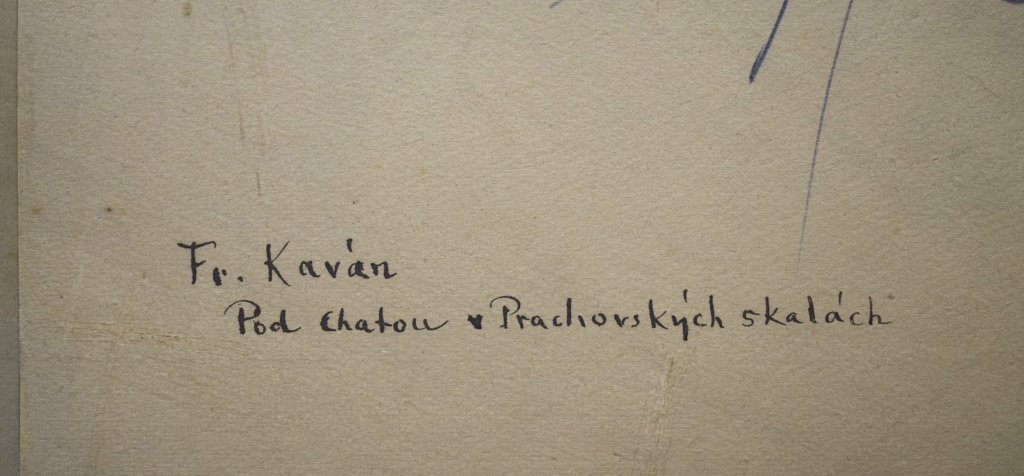 Fr. Kaván
Pod chatou v Prachovských skalách